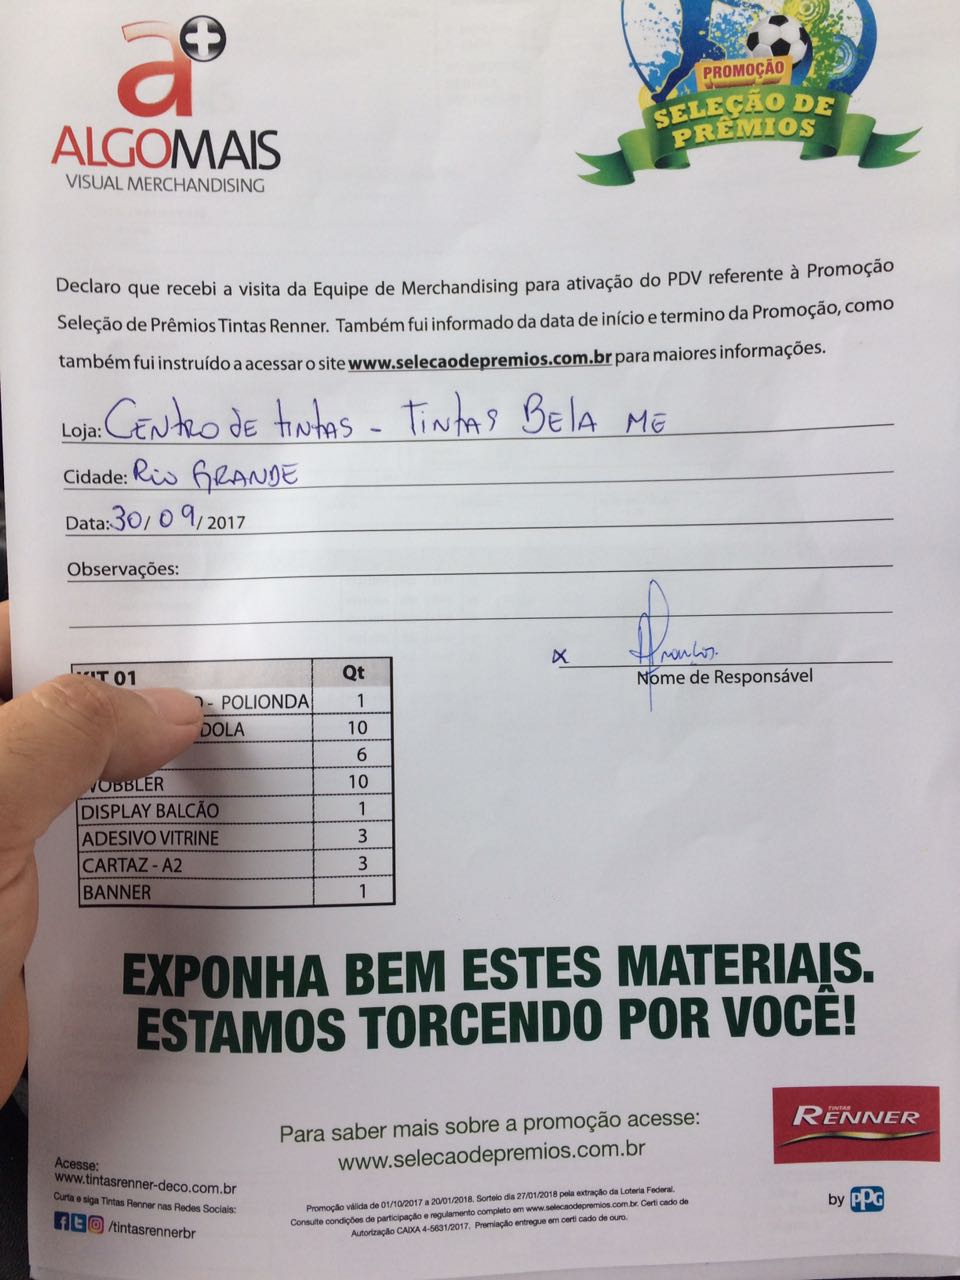 a+
ALGOMAIS
VISUAL MERCHANDISING
PROMOÇÃO
SELEÇÃO DE
PRÊMIOS
Declaro que recebi a visita da Equipe de Merchandising para ativação do PDV referente à Promoção
Seleção de Prêmios Tintas Renner. Também fui informado da data de início e termino da Promoção, como
também fui instruído a acessar o site www.selecaodepremios.com.br para maiores informações.
Loja: CENTRO DE TINTAS - TINTAS BELA ME
Cidade: RIO GRANDE
Data: 30/ 09/ 2017
Observações:
x
Nome de Responsável
KIT 01 Qt
- POLIONDA 1
10
6
WOBBLER 10
DISPLAY BALCÃO 1
ADESIVO VITRINE 3
CARTAZ - A2 3
BANNER 1
EXPONHA BEM ESTES MATERIAIS.
ESTAMOS TORCENDO POR VOCÊ!
Para saber mais sobre a promoção acesse:
www.selecaodepremios.com.br
TINTAS
RENNER
by PPG
Acesse:
www.tintasrenner-deco.com.br
Curta e siga Tintas Renner nas Redes Sociais:
/tintasrennerbr
Promoção válida de 01/10/2017 a 20/01/2018. Sorteio dia 27/01/2018 pela extração da Loteria Federal.
Consulte condições de participação e regulamento completo em www.selecaodepremios.com.br. Certi cado de
Autorização CAIXA 4-5631/2017. Premiação entregue em certi cado de ouro.